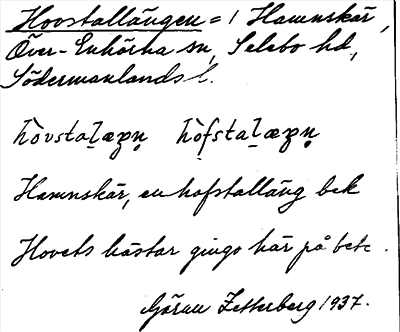 Hovstallängen = / Hamnskär,
Över-Enhörna sn, Selebo hd,
Södermanlands l.
hòvstaḷæŋn̥ hòfstaḷæŋn̥
Hamnskär, en hofstalläng bek
Hovets hästar gingo här på bete.
Göran Zetterberg 1937.